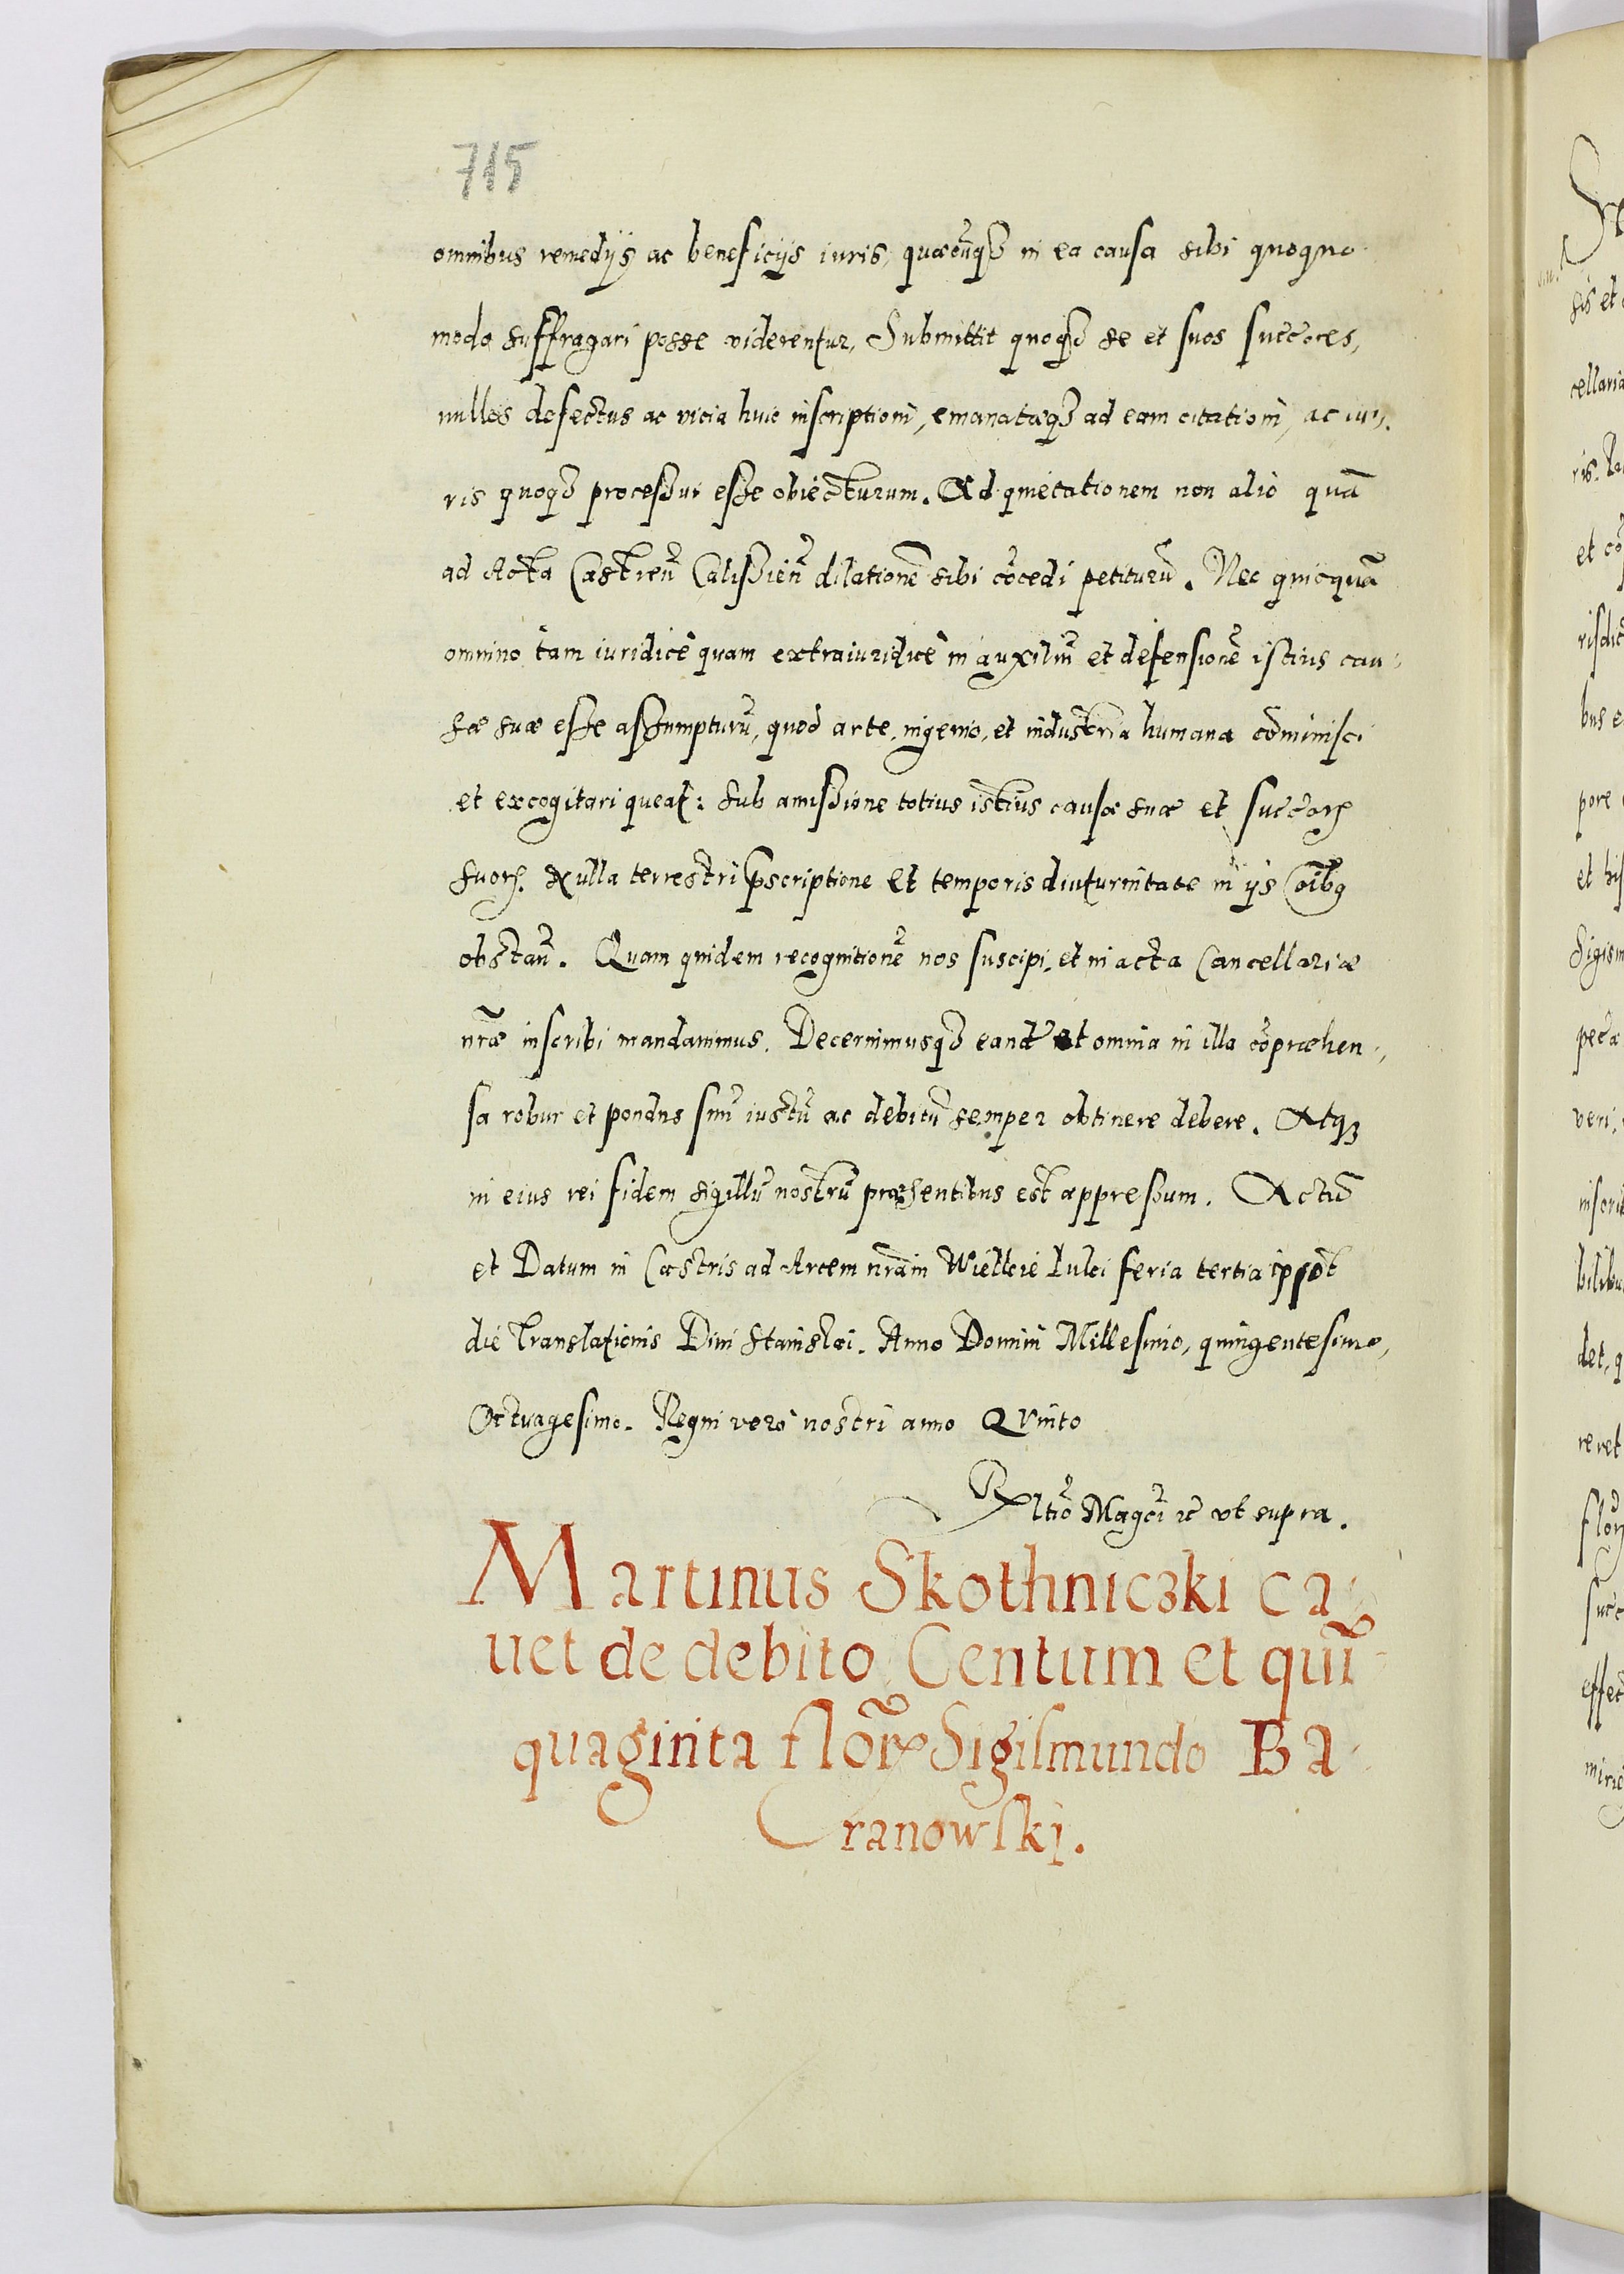 715
omnibus remedijs ac beneficijs iuris, quæcũq3 in ea causa sibi quoquo
modo suffragari posse viderentur, Submittit quoq3 se et suos succ̃ores,
nullos defectus ac vicia huic inscriptioni, emanatæq3 ad eam citationi, ac iu„
ris quoq3 processui esse obiecturum. Ad quietationem non alio quã
ad Acta Castreñ Calissieñ dilationẽ sibi cõcedi petiturũ. Nec quicquã
omnino tam iuridicè quam extraiuridicè in auxiliũ et defensionẽ istius cau„
sæ suæ esse assumpturũ, quod arte, ingenio, et industria humana cõminisci
et excogitari queat: sub amissione totius istius causæ suæ et succ̃oꝝ
suoꝝ. Nulla terrestri p̃scriptione et temporis diuturnitate in ijs oĩbꝯ
obstañ. Quam quidem recognitionẽ nos suscipi, et in acta Cancellariæ
nr̃æ inscribi mandauimus. Decernimusq3 eand̃ et omnia in illa cõpræhen„
sa robur et pondus suũ iustũ ac debitũ semper obtinere debere. Atq3
in eius rei fidem sigillũ nostrũ præsentibus est appressum. Actũ
et Datum in Castris ad Arcem nr̃am Wielkie Luki feria tertia
die Translationis Diui Stanislai. Anno Domini Millesimo, quingentesimo,
Octuagesimo. Regni verò nostri anno Qvinto
Rel̃tio Magc̃i &c̃ vt supra.
Martinus Skothniczki ca„
uet de debito Centum et quĩ„
quaginta flor̃ꝝ Sigismundo Ba„
ranowski.